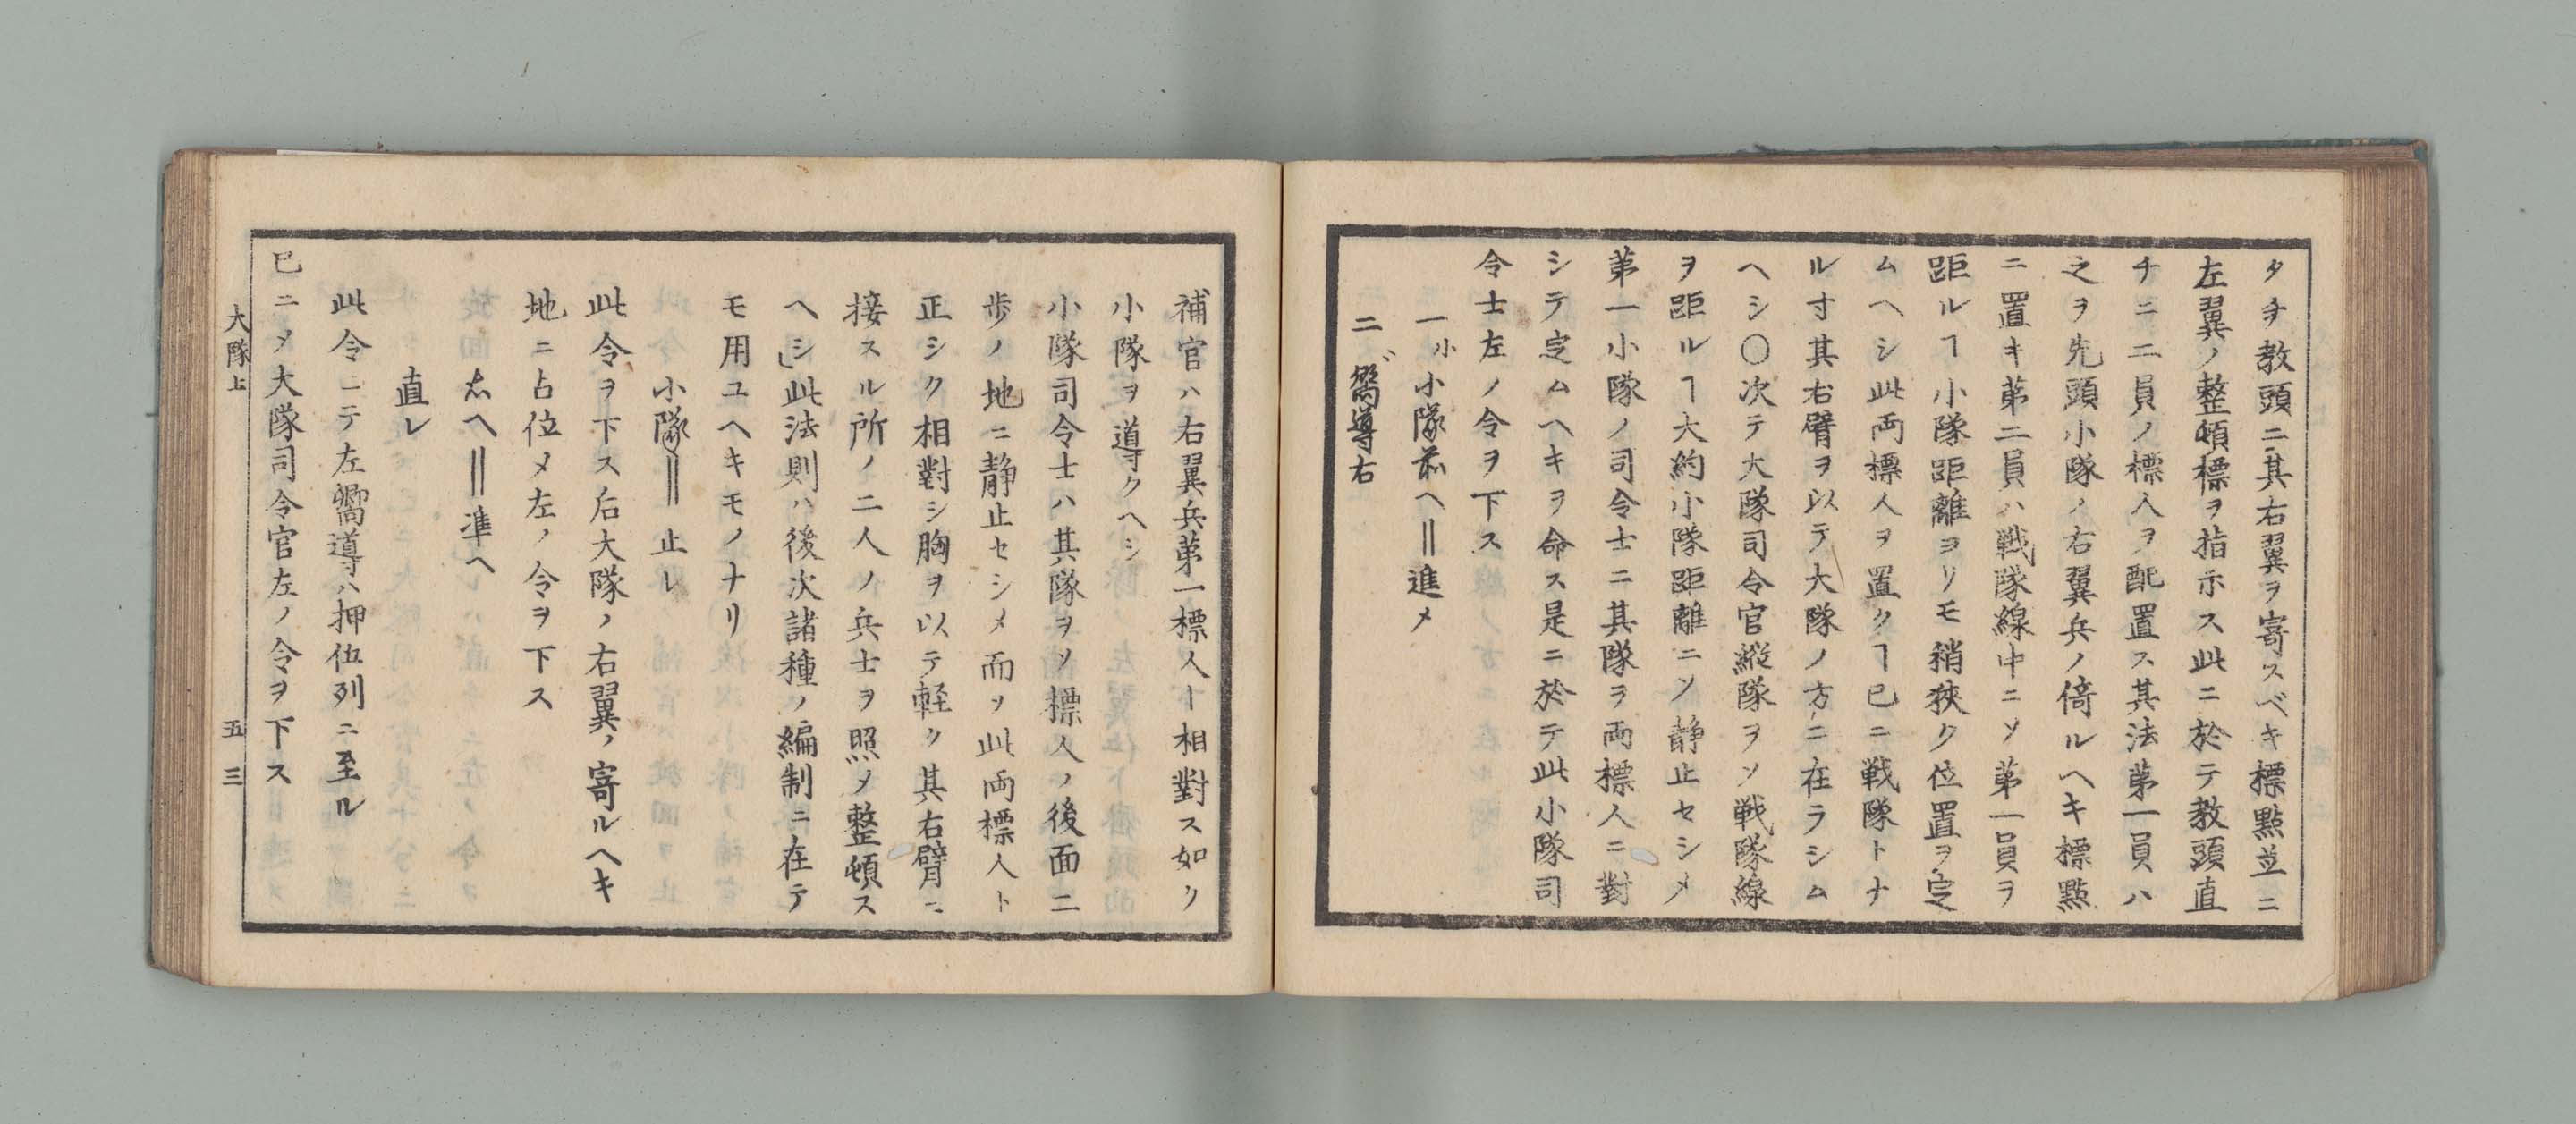 タヲ教頭ニ其右翼ヲ寄スベキ標點並ニ
左翼ノ整頓標ヲ指示ス此ニ於テ教頭直
チニ二員ノ標人ヲ配置ス其法第一員ハ
之ヲ先頭小隊ノ右翼兵ノ倚ルヘキ標點
ニ置キ第二員ハ戦隊線中ニソ第一員ヲ
距ルヿ小隊距離ヨリモ稍狹ク位置ヲ定
ムヘシ此両標人ヲ置クヿ已ニ戦隊トナ
ル寸其右臂ヲ以テ大隊ノ方ニ在ラシム
ヘシ〇次テ大隊司令官縦隊ヲソ戦隊線
ヲ距ルヿ大約小隊距離ニソ静止セシメ
第一小隊ノ司令士ニ其隊ヲ両標人ニ對
シテ定ムヘキヲ命ス是ニ於テ此小隊司
令士左ノ令ヲ下ス
一小 小隊前へ‖進メ
二 嚮導右
補官ハ右翼兵第一標人ト相對ス如ク
小隊ヲ導クヘシ
小隊司令士ハ其隊ヲソ標人ノ後面二
歩ノ地ニ静止セシメ而ソ此両標人ト
正シク相對シ胸ヲ以テ軽ク其右臂ニ
接スル所ノ二人ノ兵士ヲ照ソ整頓ス
ヘシ此法則ハ後次諸種ノ編制ニ在テ
モ用ユヘキモノナリ
小隊‖止レ
此令ヲ下ス后大隊ノ右翼ノ寄ルヘキ
地ニ占位メ左ノ令ヲ下ス
右へ‖準へ
直レ
此令ニテ左嚮導ハ押伍列ニ至ル
已ニメ大隊司令官左ノ令ヲ下ス
大隊上 五三